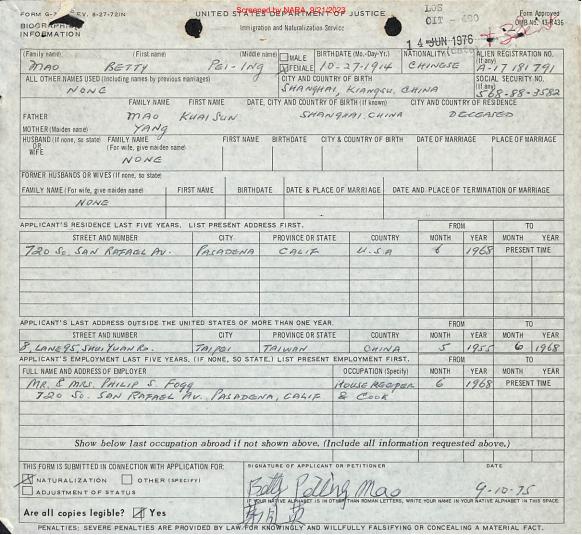 Screened by NARA, 9/21/2023
FORM G- REV. 8-27-72)N UNITED STATES DEPARTMENT OF JUSTICE LOS Form Approved
BIOGRAPHIC Immigration and Naturalization Service OMB No. 43-R436
INFORMATION 14 JUN 1976
(Family name) (First name) (Middle name) MALE FEMALE BIRTHDATE (Mo.-Day-Yr.) NATIONALITY ALIEN REGISTRATION NO. (If any)
MAO BETTY PEI-ING 10-27-1914 CHINESE A-17 181 791
ALL OTHER NAMES USED (Including names by previous marriages) CITY AND COUNTRY OF BIRTH SOCIAL SECURITY NO. (If any)
NONE SHANGHAI, KIANGSU, CHINA 568-88-3582
FAMILY NAME FIRST NAME DATE, CITY AND COUNTRY OF BIRTH (If known) CITY AND COUNTRY OF RESIDENCE
FATHER MAO KUAI SUN SHANGHAI, CHINA DECEASED
MOTHER (Maiden name) YANG
HUSBAND (If none, so state) OR WIFE FAMILY NAME (For wife, give maiden name) FIRST NAME BIRTHDATE CITY & COUNTRY OF BIRTH DATE OF MARRIAGE PLACE OF MARRIAGE
NONE
FORMER HUSBANDS OR WIVES (If none, so state)
FAMILY NAME (For wife, give maiden name) FIRST NAME BIRTHDATE DATE & PLACE OF MARRIAGE DATE AND PLACE OF TERMINATION OF MARRIAGE
NONE
APPLICANT'S RESIDENCE LAST FIVE YEARS. LIST PRESENT ADDRESS FIRST. FROM TO
STREET AND NUMBER CITY PROVINCE OR STATE COUNTRY MONTH YEAR MONTH YEAR
720 SO. SAN RAFAEL AV. PASADENA CALIF U.S.A 6 1968 PRESENT TIME
APPLICANT'S LAST ADDRESS OUTSIDE THE UNITED STATES OF MORE THAN ONE YEAR. FROM TO
STREET AND NUMBER CITY PROVINCE OR STATE COUNTRY MONTH YEAR MONTH YEAR
8, LANE 95, SHUI YUAN RD. TAIPEI TAIWAN CHINA 5 1955 6 1968
APPLICANT'S EMPLOYMENT LAST FIVE YEARS. (IF NONE, SO STATE.) LIST PRESENT EMPLOYMENT FIRST. FROM TO
FULL NAME AND ADDRESS OF EMPLOYER OCCUPATION (Specify) MONTH YEAR MONTH YEAR
MR. & MRS. PHILIP S. FOGG HOUSE KEEPER 6 1968 PRESENT TIME
720 SO. SAN RAFAEL AV. PASADENA, CALIF & COOK
Show below last occupation abroad if not shown above. (Include all information requested above.)
THIS FORM IS SUBMITTED IN CONNECTION WITH APPLICATION FOR: SIGNATURE OF APPLICANT OR PETITIONER DATE
NATURALIZATION OTHER (SPECIFY)
ADJUSTMENT OF STATUS Betty Pei-ing Mao 9-10-75
IF YOUR NATIVE ALPHABET IS IN OTHER THAN ROMAN LETTERS, WRITE YOUR NAME IN YOUR NATIVE ALPHABET IN THIS SPACE
Are all copies legible? Yes
PENALTIES: SEVERE PENALTIES ARE PROVIDED BY LAW FOR KNOWINGLY AND WILLFULLY FALSIFYING OR CONCEALING A MATERIAL FACT.